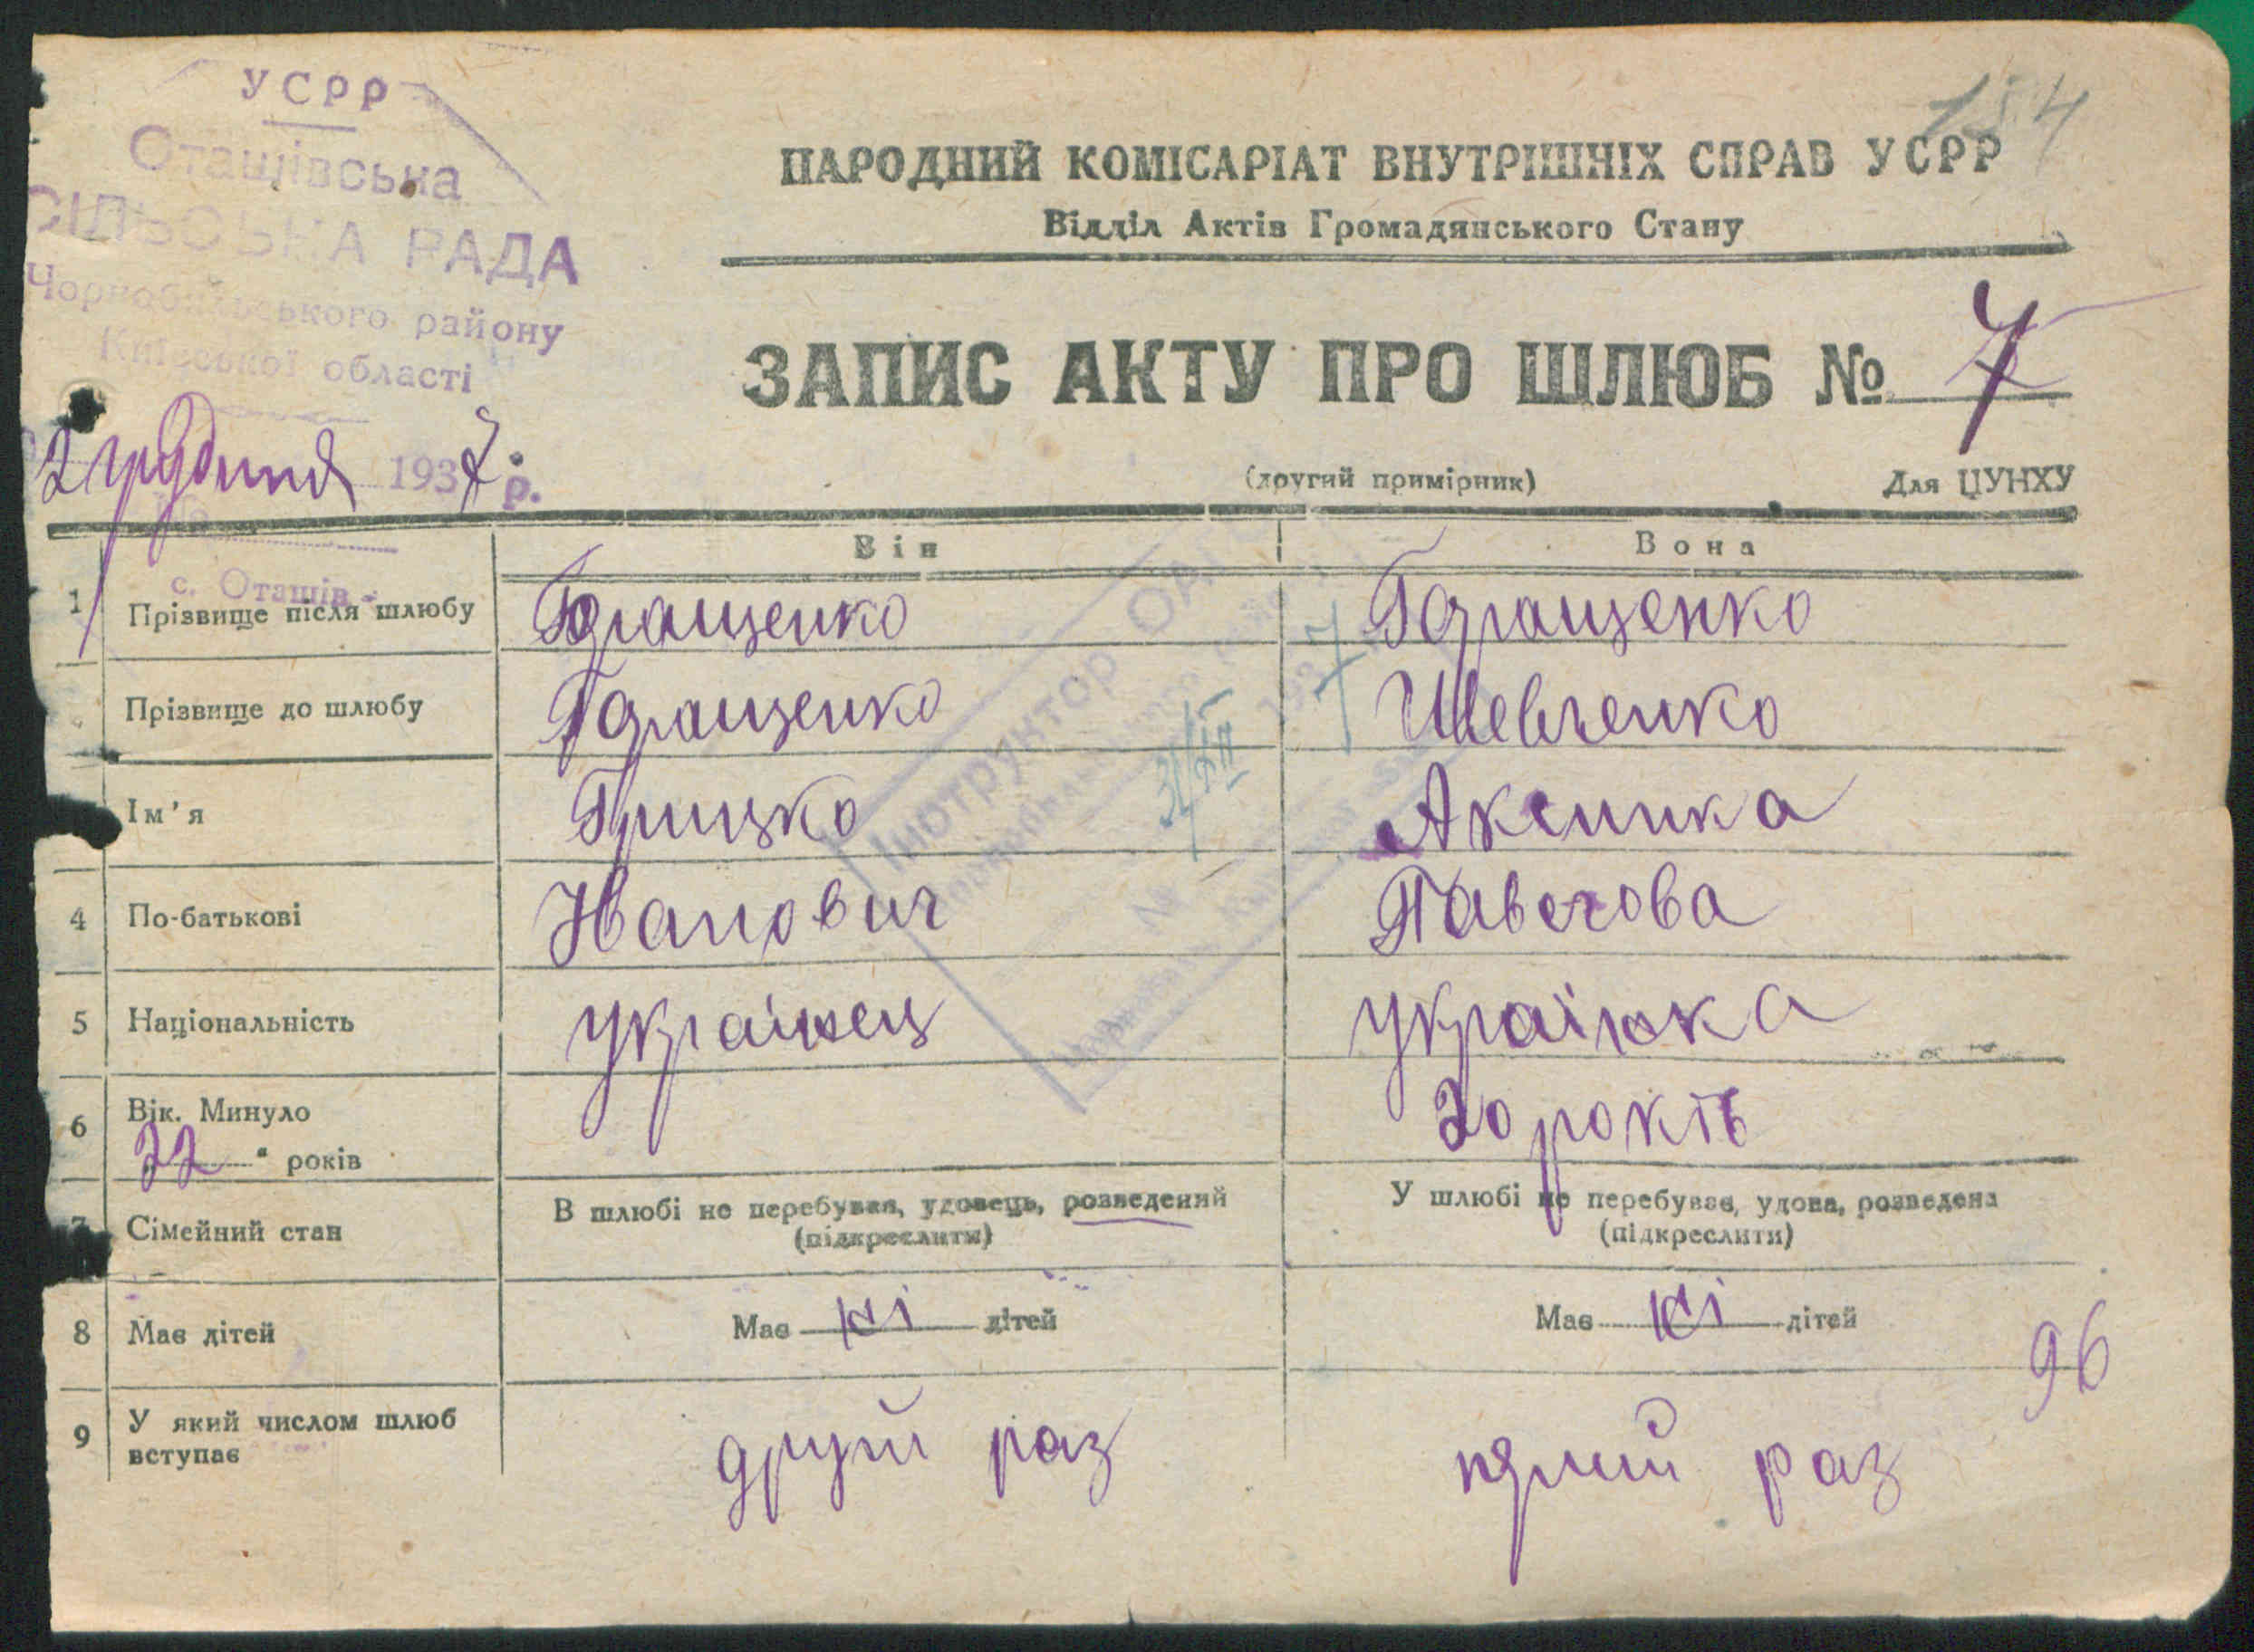 УСРР
Оташівська
СІЛЬСЬКА РАДА
Чорнобильського району
Київської області
2 грудня 1937 р.
№
с. Оташів
154
НАРОДНИЙ КОМІСАРІАТ ВНУТРІШНІХ СПРАВ УСРР
Відділ Актів Громадянського Стану
ЗАПИС АКТУ ПРО ШЛЮБ № 7
(другий примірник) Для ЦУНХУ
Він Вона
1 Прізвище після шлюбу Геращенко Геращенко
Прізвище до шлюбу Геращенко Шевченко
Ім'я Грицко Аксинка
4 По-батькові Иванович Павлова
5 Національність українец українка
6 Вік. Минуло 22 років 20 років
7 Сімейний стан В шлюбі не перебував, удовець, розведений (підкреслити) У шлюбі не перебував, удова, розведена (підкреслити)
8 Має дітей Має ні дітей Має ні дітей
96
9 У який числом шлюб вступає другий раз перший раз
Інструктор
31/XII 1937
№